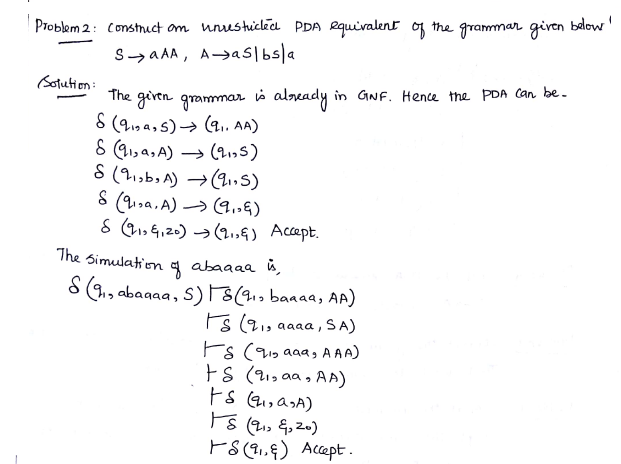 Problem 2: Construct an unrestricted PDA equivalent of the grammar given below
S → aAA, A → aS|bS|a
Solution:
The given grammar is already in GNF. Hence the PDA can be-
δ (q₁,a,S) → (q₁, AA)
δ (q₁,a,A) → (q₁,S)
δ (q₁,b,A) → (q₁,S)
δ (q₁,a,A) → (q₁,ε)
δ (q₁,ε,z0) → (q₁,ε) Accept.
The simulation of abaaaa is,
δ (q₁, abaaaa, S) ⊢ δ(q₁, baaaa, AA)
⊢ δ (q₁, aaaa, SA)
⊢ δ (q₁, aaa, AAA)
⊢ δ (q₁, aa, AA)
⊢ δ (q₁, a,A)
⊢ δ (q₁, ε,z0)
⊢ δ(q₁,ε) Accept.